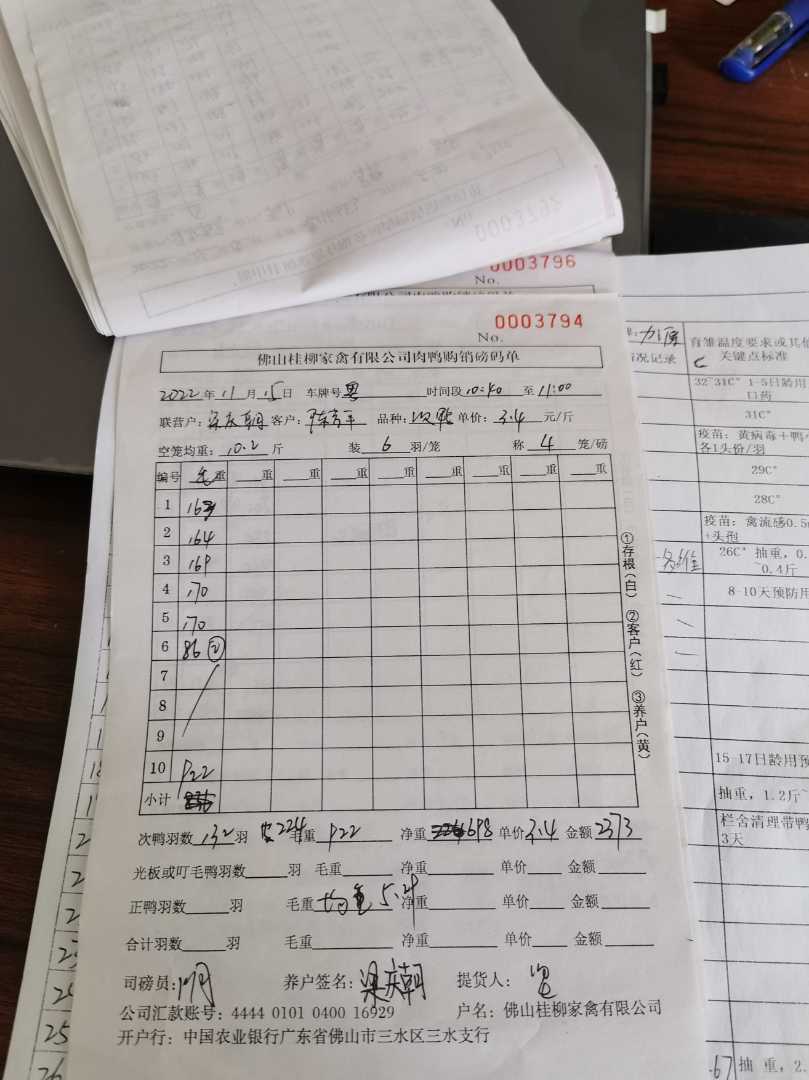 0003792
No.
0003796
No.
0003794
No.
佛山桂柳家禽有限公司肉鸭购销磅码单
2022年11月15日 车牌号粤 时间段10:40至11:00
联营户: 梁庆朝 客户: 陈志平 品种: 次鸭 单价: 3.4 元/斤
空笼均重: 10.2 斤 装 6 羽/笼 称 4 笼/磅
编号 毛重 重 重 重 重 重 重 重 重
1 163
2 164
3 169
4 170
5 170
6 86 ②
7
8
9
10 922
小计
①存根(白) ②客户(红) ③养户(黄)
次鸭羽数 132 羽 皮224 毛重 922 净重 698 单价 3.4 金额 2373
光板或叮毛鸭羽数 羽 毛重 净重 单价 金额
正鸭羽数 羽 毛重 均重 5.29 净重 单价 金额
合计羽数 羽 毛重 净重 单价 金额
司磅员: 养户签名: 梁庆朝 提货人:
公司汇款账号: 4444 0101 0400 16929 户名: 佛山桂柳家禽有限公司
开户行: 中国农业银行广东省佛山市三水区三水支行
育雏温度要求或其他
情况记录 关键点标准
32~31C° 1-5日龄用
口药
31C°
疫苗: 黄病毒+鸭
各1头份/羽
29C°
28C°
疫苗: 禽流感0.5
+头孢
26C° 抽重, 0.
~0.4斤
8-10天预防用
15-17日龄用预
抽重, 1.2斤~
栏舍清理带鸭
3天
25
26
.67 抽重, 2.